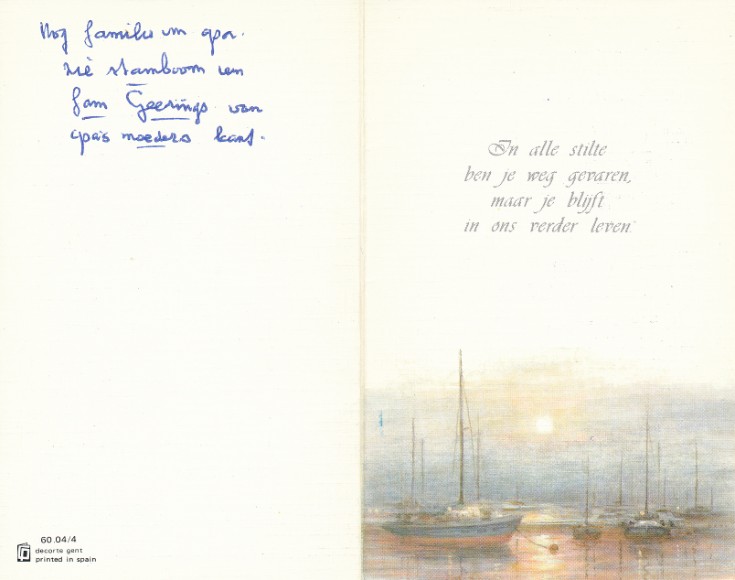 Nog familie van opa.
zie stamboom van
fam Geerings van
opa's moeders kant.
In alle stilte
ben je weg gevaren,
maar je blijft
in ons verder leven.
60.04/4
decorte gent
printed in spain